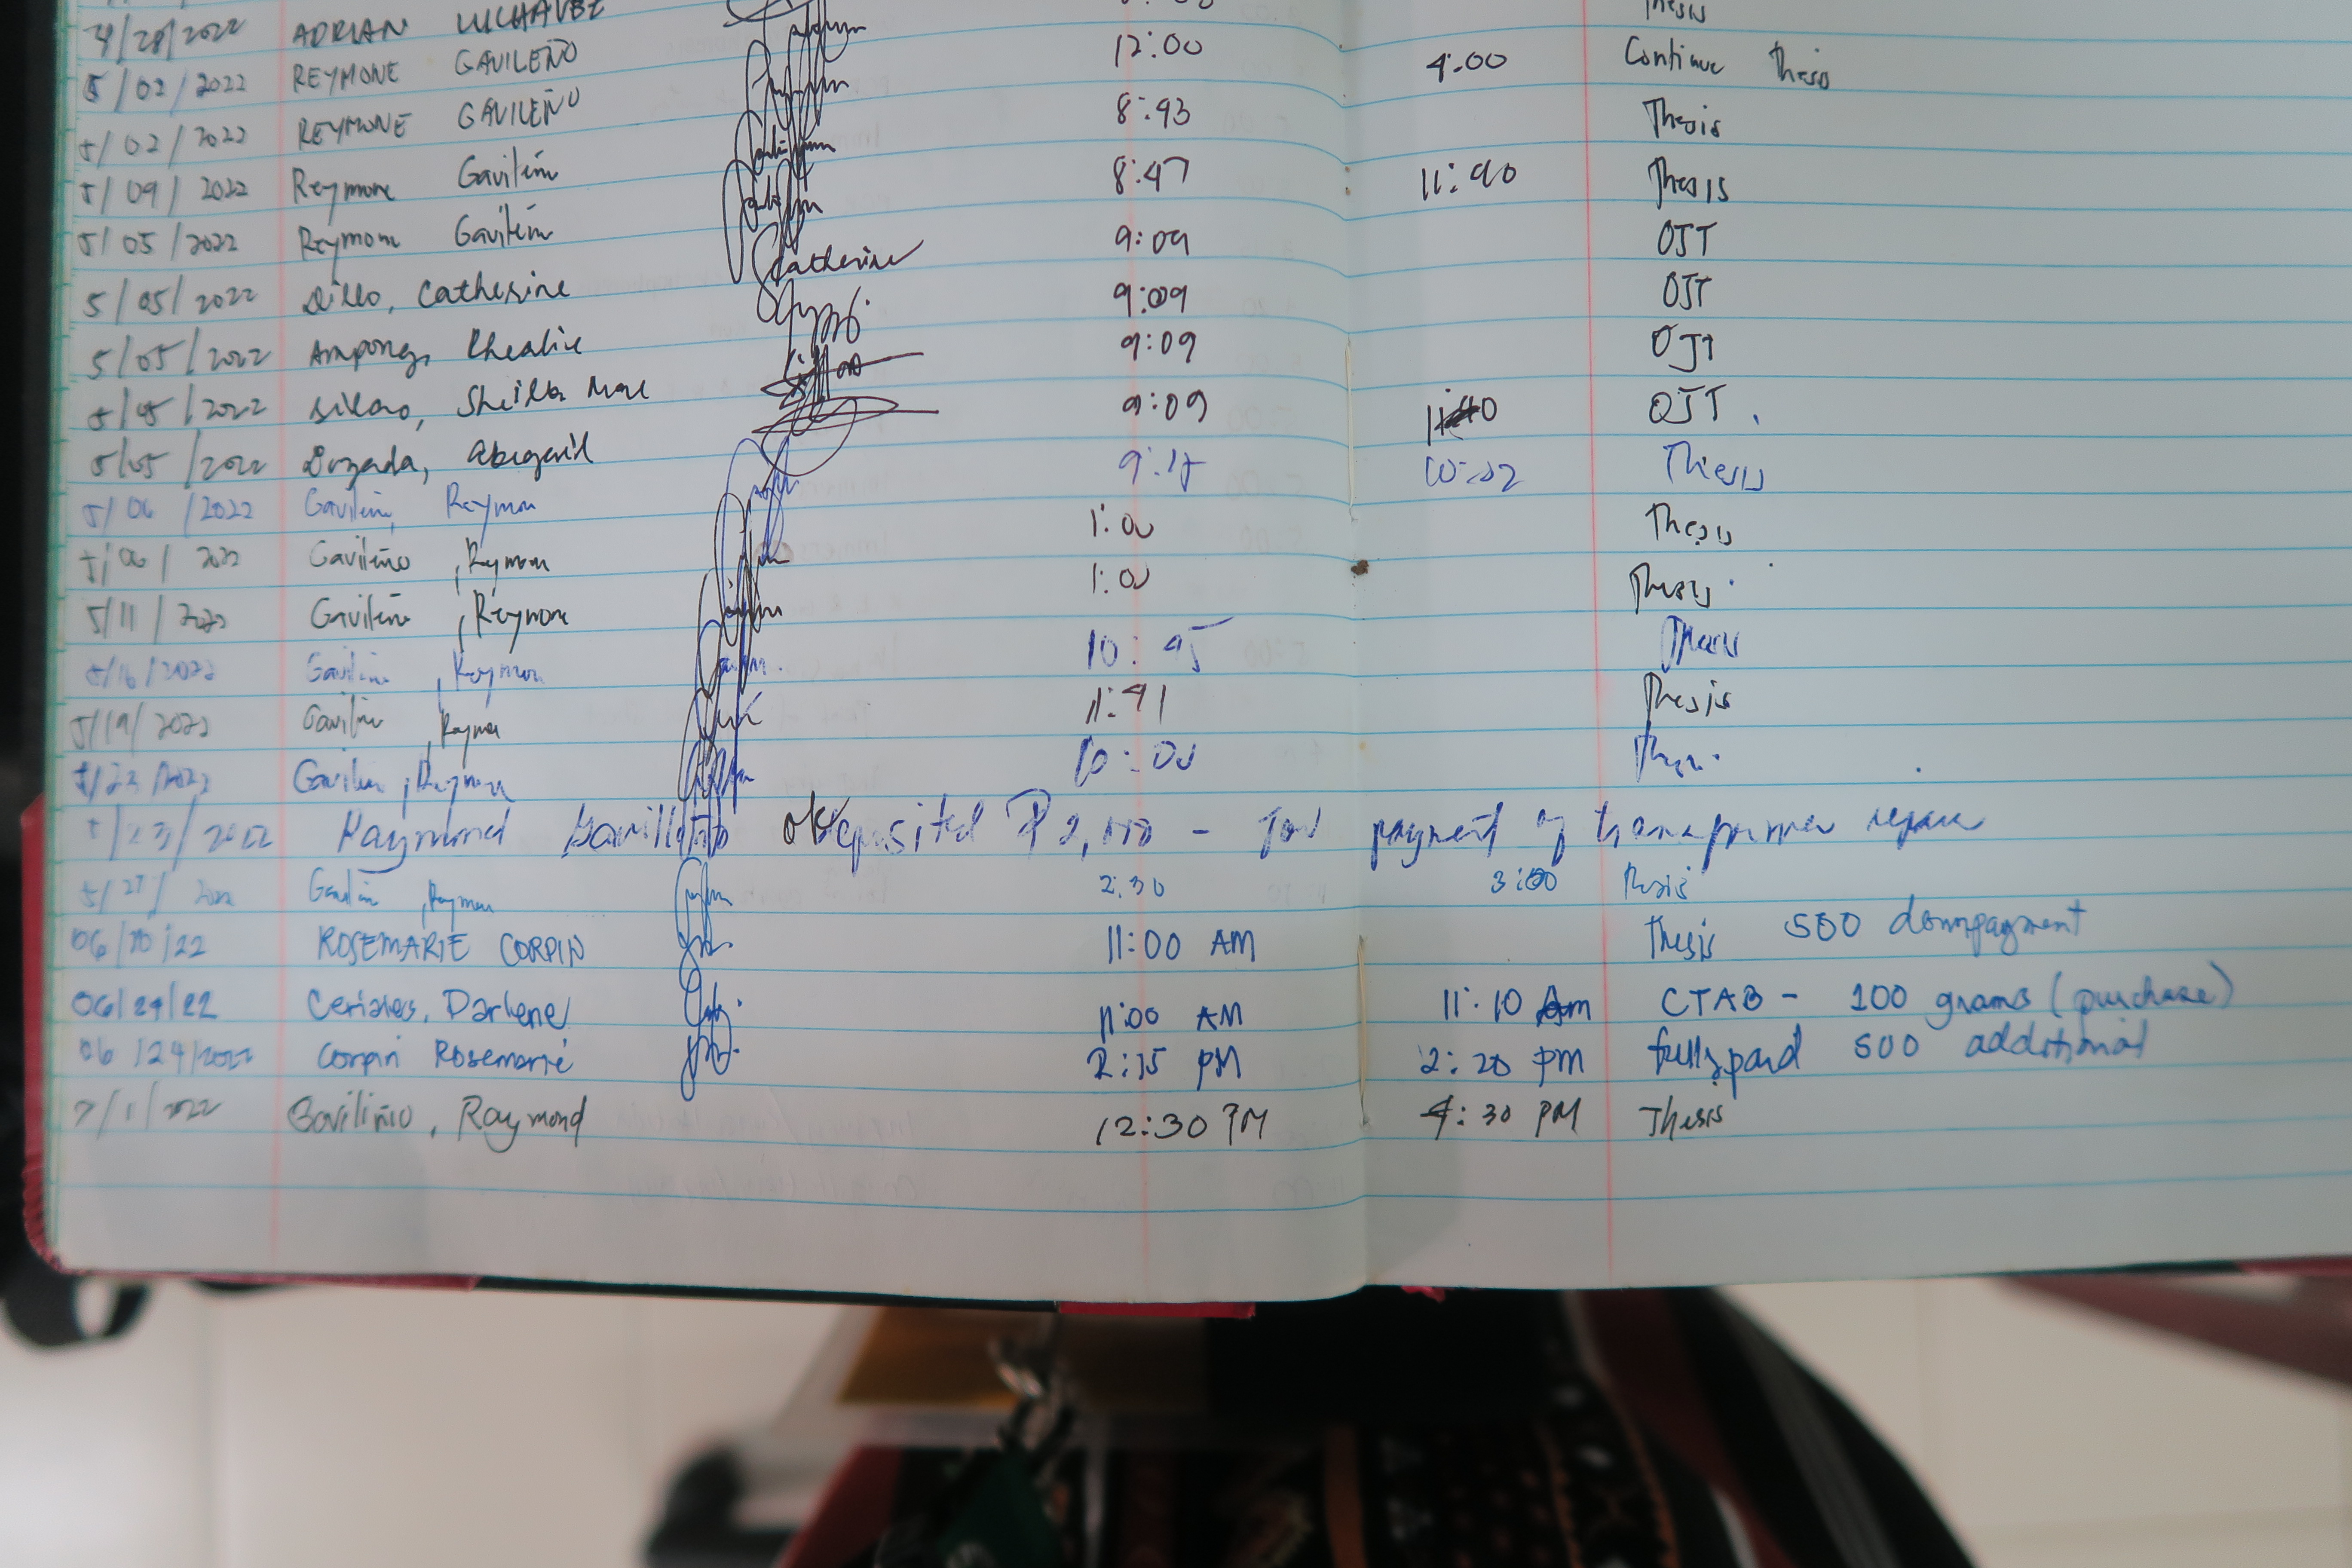 4/28/2022 ADRIAN LUCHAVEZ Thesis
5/02/2022 REYMONE GAVILEÑO 12:00 4:00 Continue Thesis
5/02/2022 REYMONE GAVILEÑO 8:43 Thesis
5/04/2022 Reymone Gavileño 8:47 11:40 Thesis
5/05/2022 Reymone Gavileño 9:09 OJT
5/05/2022 Dillo, Catherine Catherine 9:09 OJT
5/05/2022 Ampong, Rhealie 9:09 OJT
5/05/2022 Sheilla Mae 9:09 11:40 OJT
5/05/2022 Abegail 9:15 10:22 Thesis
5/06/2022 Gavileño, Reymon 1:00 Thesis
5/06/2022 Gavileño, Reymon 1:00 Thesis
5/11/2022 Gavileño, Reymone 10:45 Thesis
5/16/2022 Gavileño, Reymon 11:41 Thesis
5/19/2022 Gavileño, Reymon 10:00 Thesis
5/23/2022 Gavileño, Reymone
5/23/2022 Raymond Gavilleño deposited ₱2,000 - for payment of transformer repair
5/27/2022 Gavileño, Reymon 2:30 3:00 Thesis
06/20/22 ROSEMARIE CORPIN 11:00 AM Thesis 500 downpayment
06/24/22 Ceriales, Darlene 11:00 AM 11:10 Am CTAB - 100 grams (purchase)
06/24/2022 Corpin Rosemarie 2:15 PM 2:20 PM fully paid 500 additional
7/1/2022 Gaviliño, Raymond 12:30 PM 4:30 PM Thesis